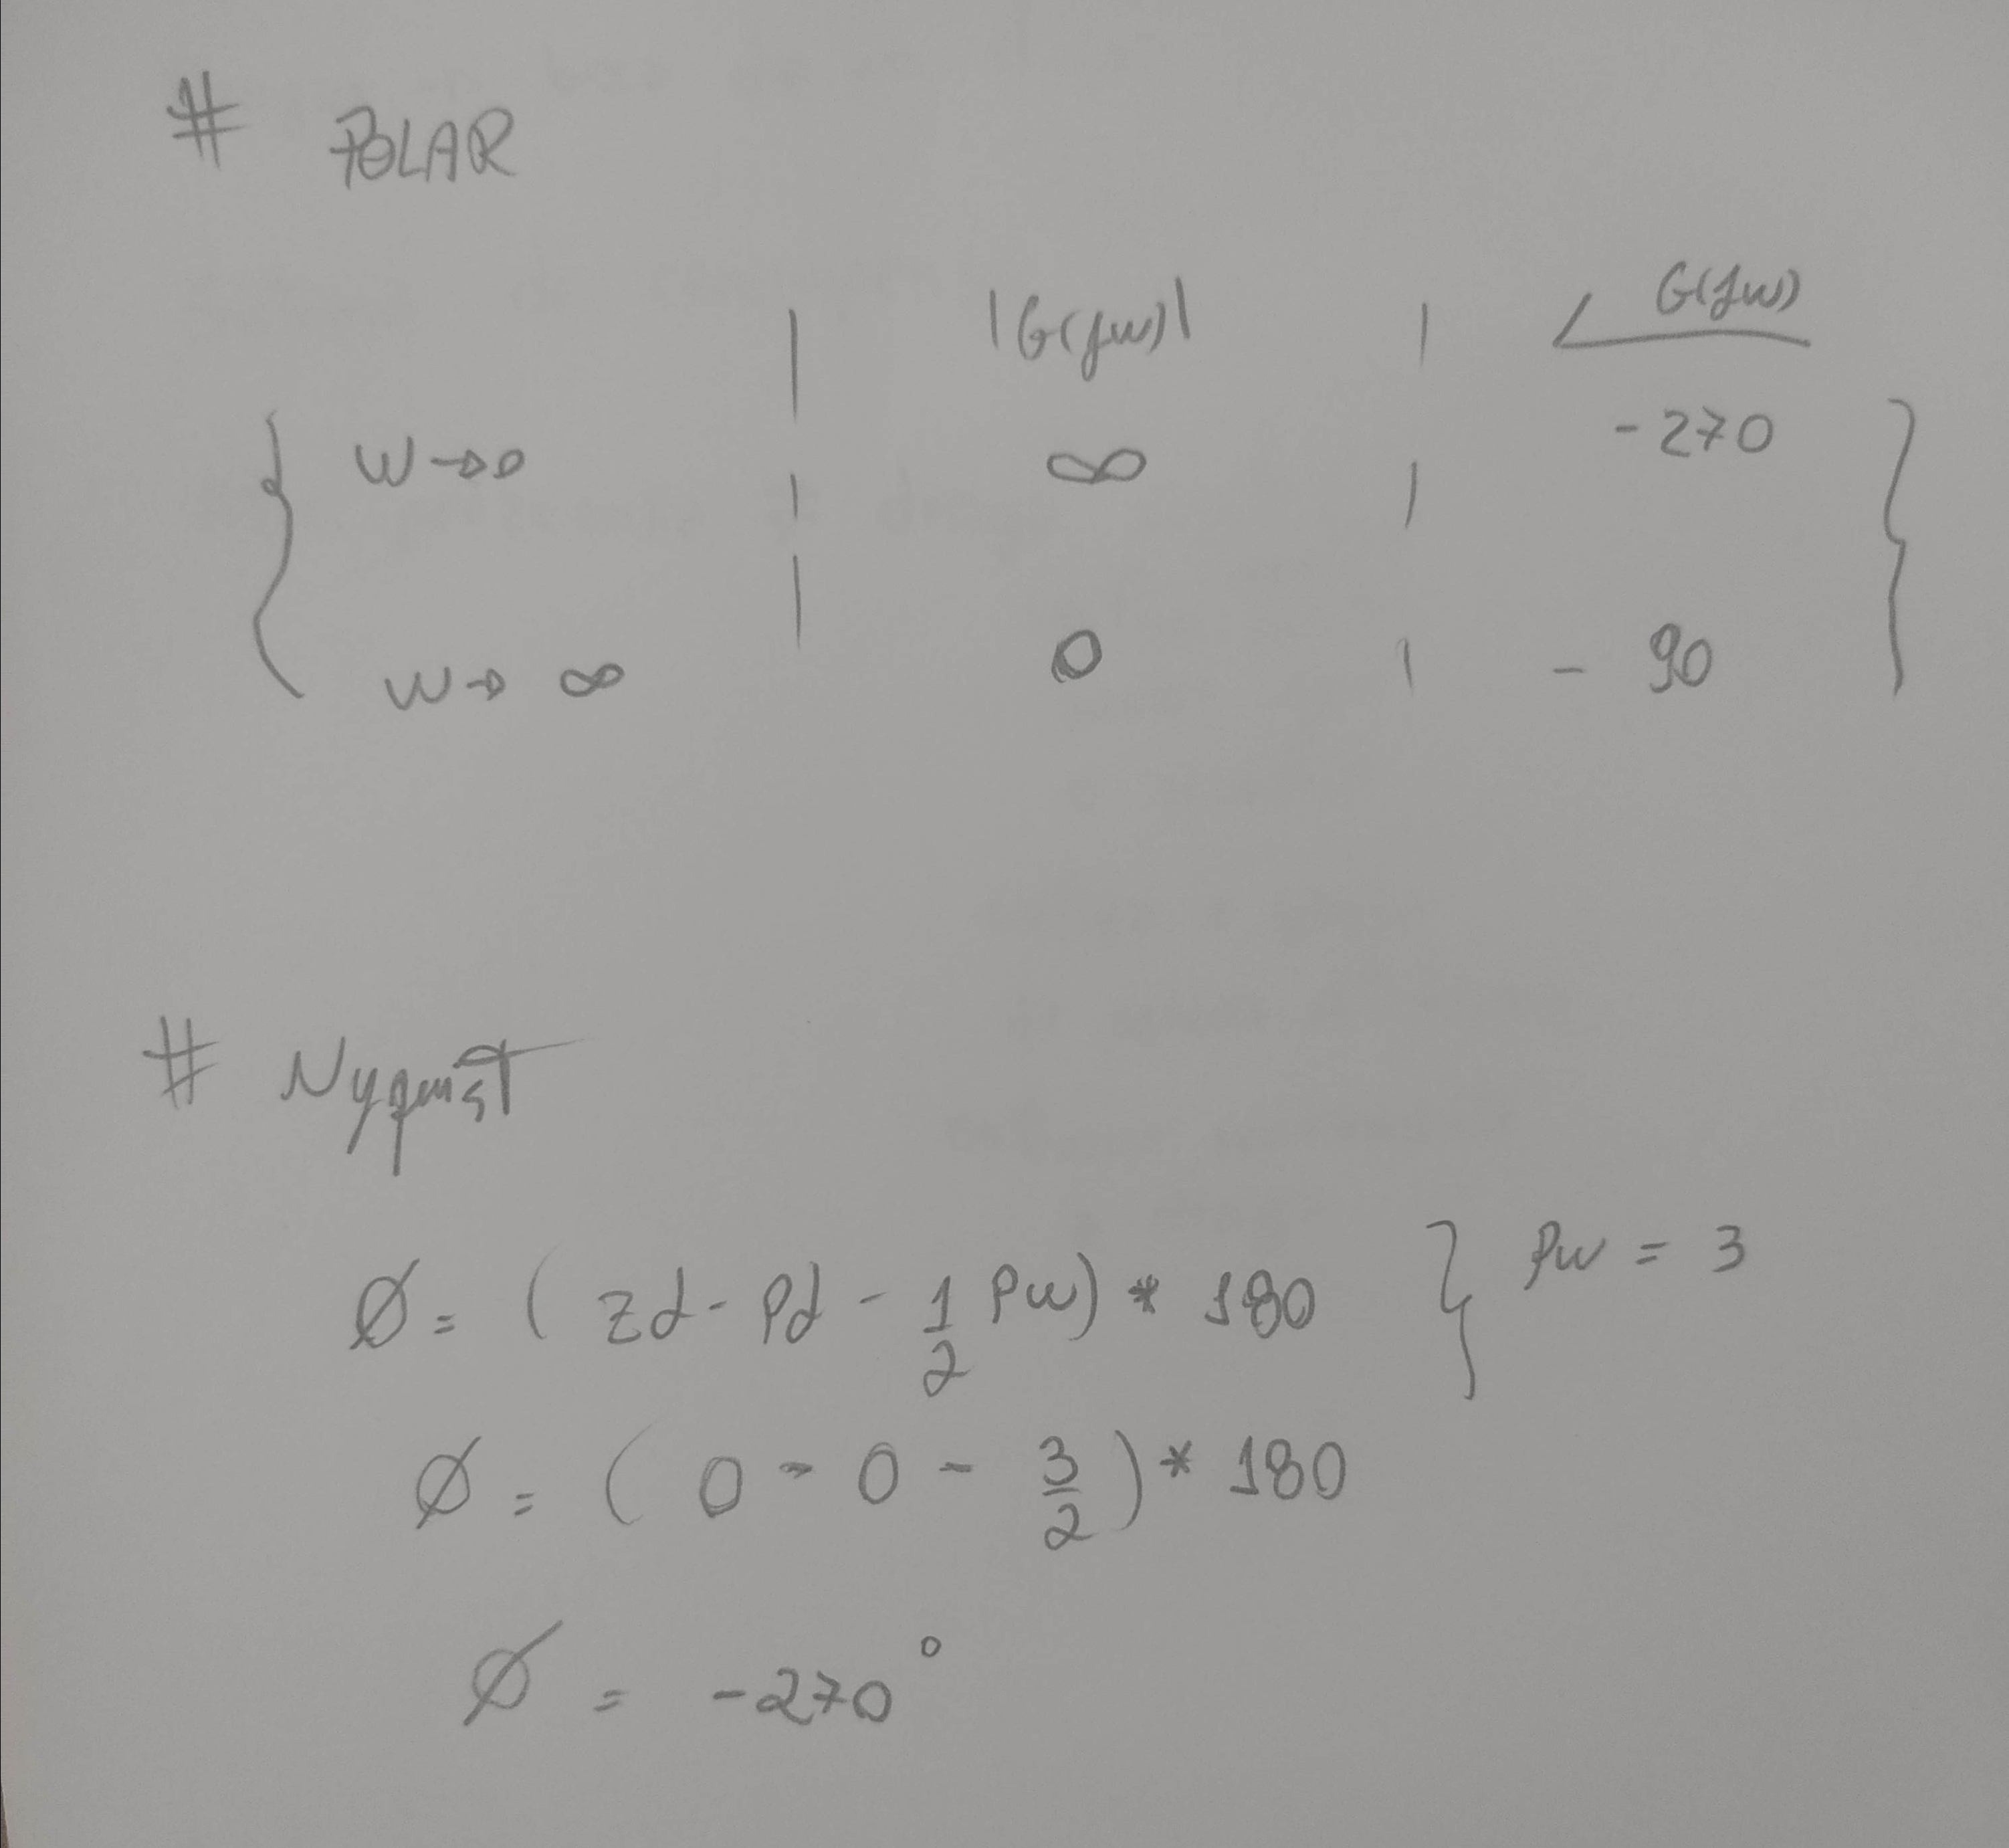 # POLAR
| |G(jw)| | ∠G(jw)
{ w→0 | ∞ | -270 }
w→∞ | 0 | - 90
# Nyquist
Ø = ( Zd - Pd - 1/2 Pw) * 180 } Pw = 3
Ø = ( 0 - 0 - 3/2 ) * 180
Ø = -270°